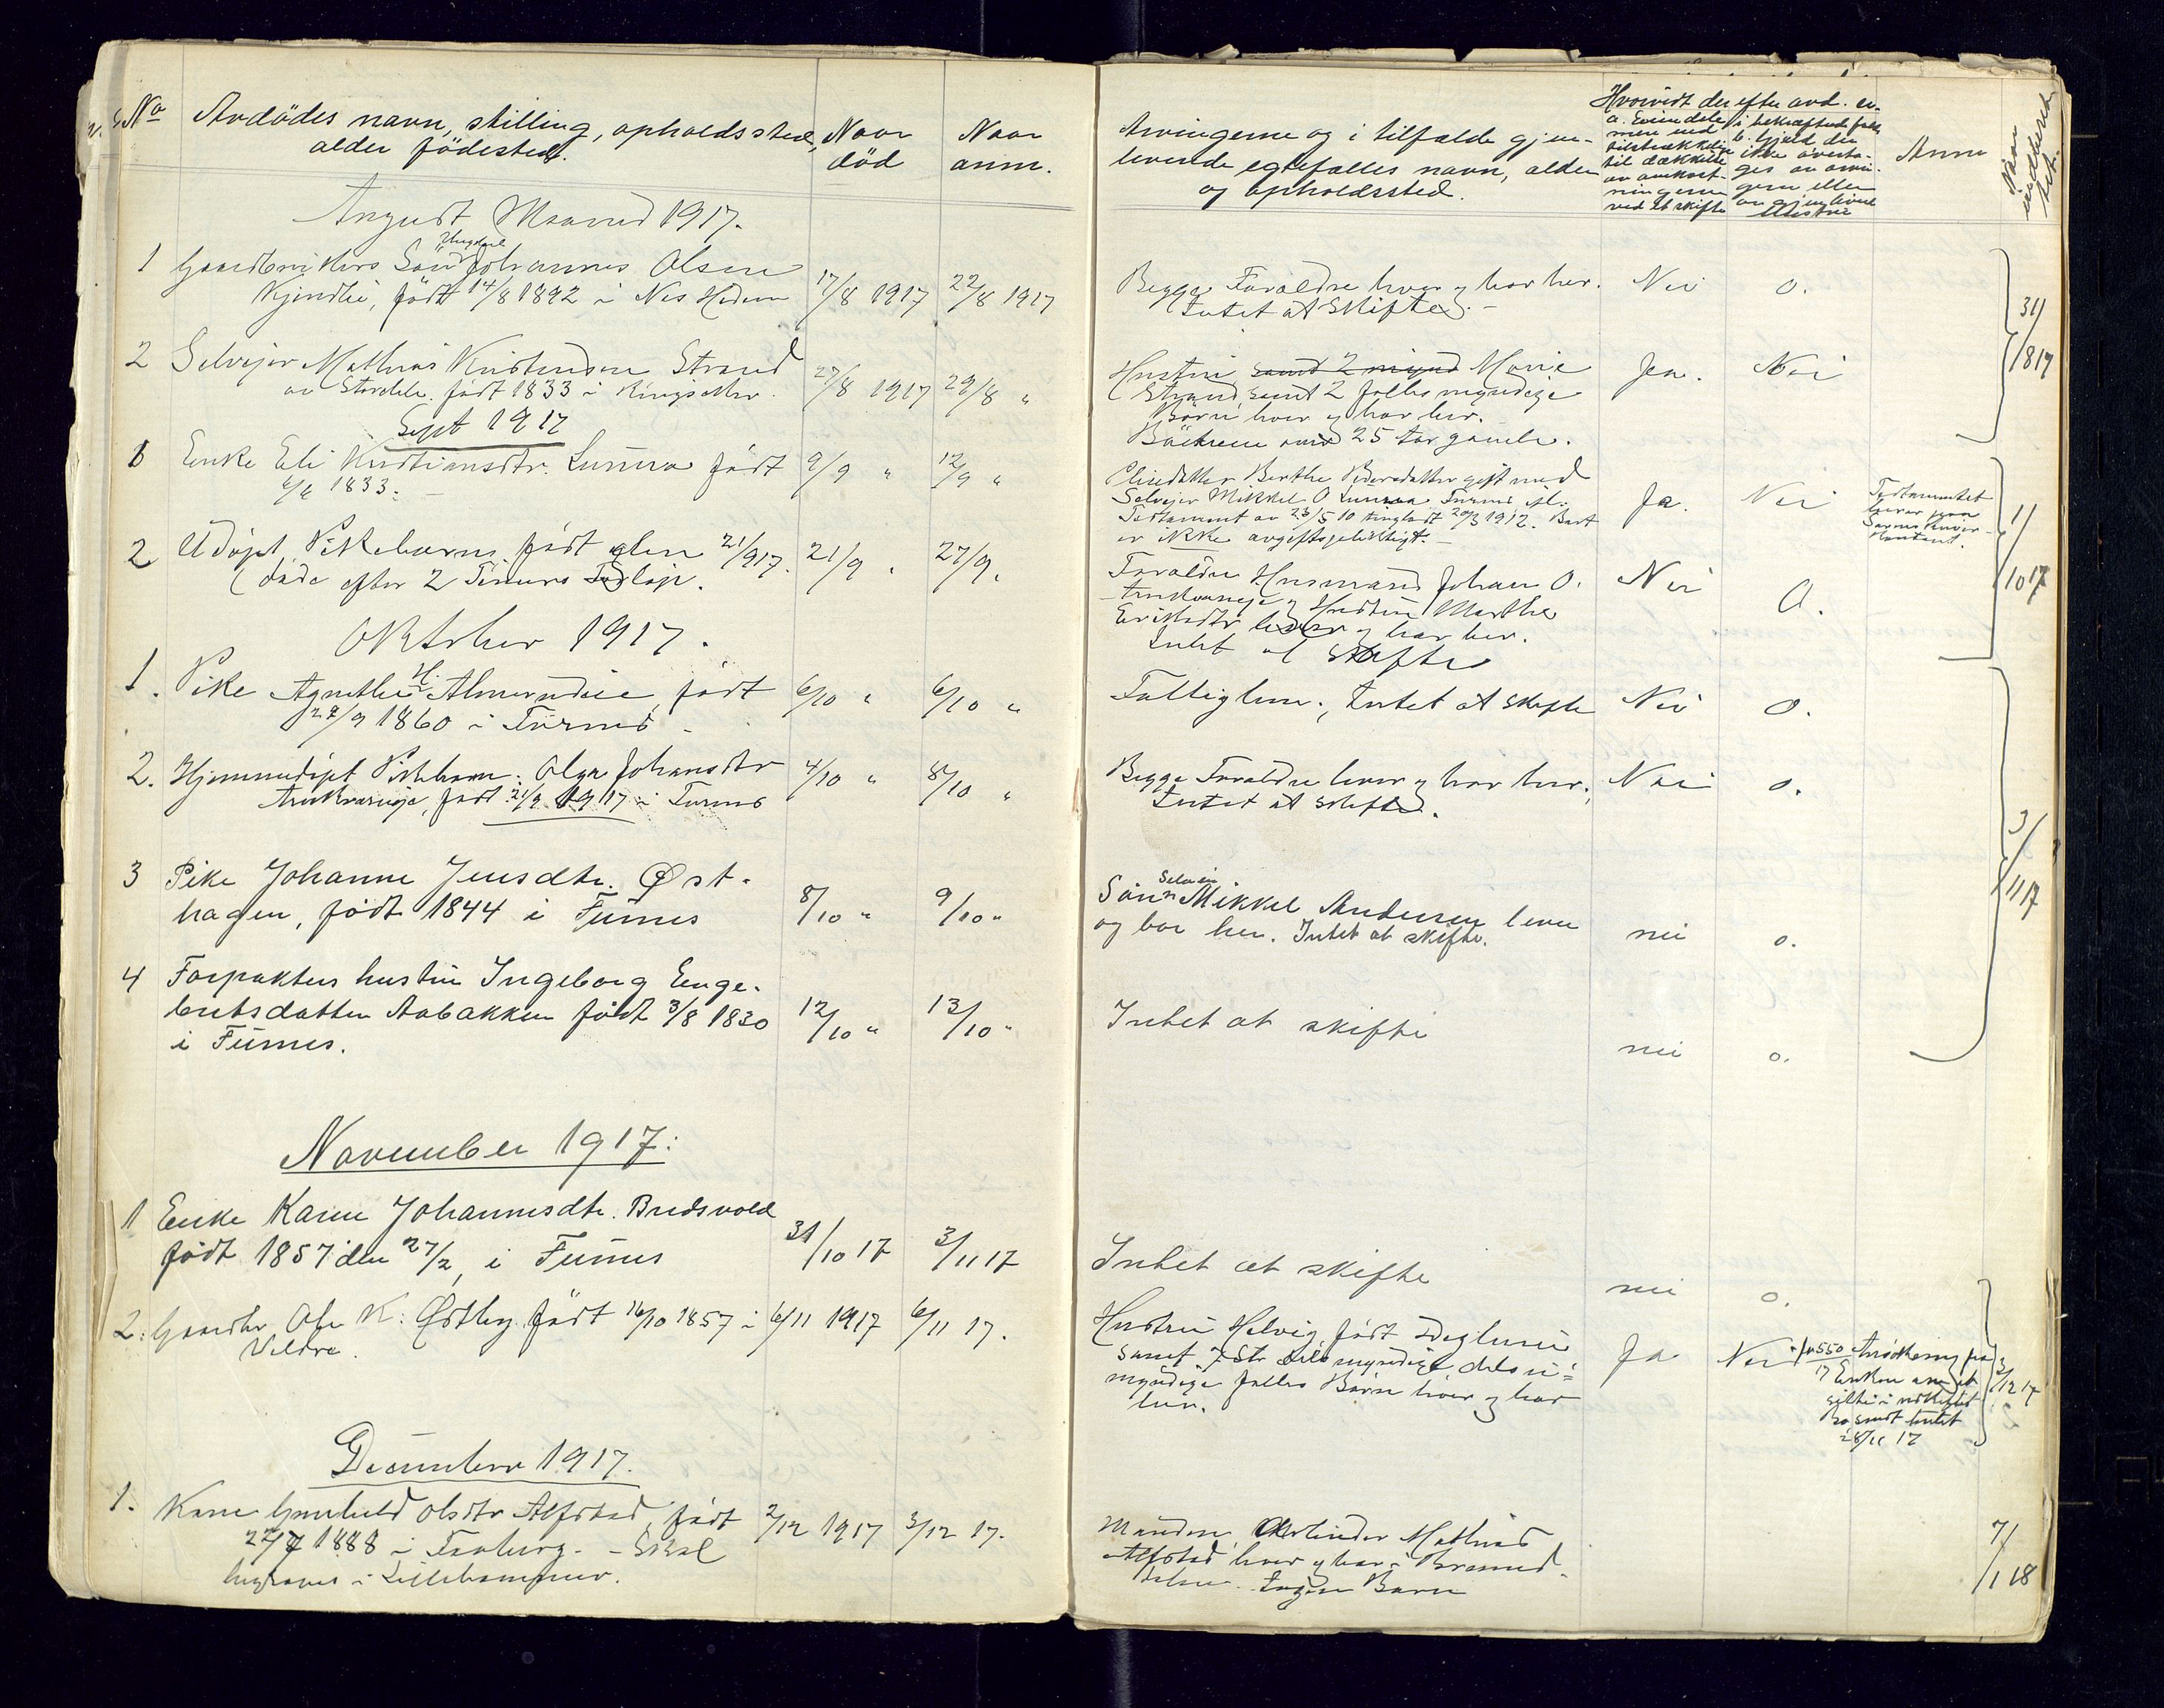 No Avdödes navn, stilling, opholdssted,
alder födested.
Naar
död
Naar
anm.
Arvingerne og i tilfælde gjen-
levende egtefælles navn, alder
og opholdssted.
Hvorvidt der efter avd. er
a. Eiendele
mer end
tilstrækkelig
til dækkelse
av omkost-
ningerne
ved et skifte
b. gjeld, der
ikke overta-
ges av arvin-
gerne eller
Anm
Naar
indberet-
tet.
August Maaned 1917.
1 Gaardbrukers Søn Ungkarl Johannes Olsen
Kjindli, født 14/8 1892 i Nes Hedem
17/8 1917 22/8 1917
Begge Forældre lever og bor her.
Intet at Skifte. -
Nei 0.
2 Selveier Mathias Kristensen Strand
født 1833 i Ringsaker.
27/8 1917 29/8 "
Hustru samt 2 mynd Marie
Strand, samt 2 fælles myndige
Børn lever og bor her.
Börnene over 25 Aar gamle.
Jea. Nei
31/8 17
Sept 1917
1 Enke Eli Kristiansdtr. Lunna født
1833. -
9/9 " 12/9 "
Plinedatter Berthe Pedersdatter gift med
Selveier Mikkel O Lunna Furnes
Testament av 23/5 10 tinglæst 1912. Boet
er ikke avgiftspliktigt. -
Ja. Nei
Testamentet
2 Udöpt Pikebarn, født den 21/9 17.
(døde efter 2 Timers Forløp.
21/9 " 27/9 "
Forældre Husmand Johan O.
og Hustru Marthe
Eriksdtr lever og bor her.
Intet at Skifte
Nei 0.
1/10 17
Oktober 1917.
1. Pike Agnethe H. Almerudeie, født
27/9 1860 i Furnes -
6/10 " 6/10 "
Fattiglem., Intet at Skifte
Nei 0.
2. Hjemmedöpt Pikebarn. Olga Johansdtr
født 21/9 1917 i Furnes
4/10 " 8/10 "
Begge Forældre lever og bor her.
Intet at Skifte.
Nei 0.
3 Pike Johanne Jensdtr. Øst-
hagen, født 1844 i Furnes
8/10 " 9/10 "
Sönn Selveier Mikkel Andersen lever
og bor her. Intet at skifte.
nei 0.
3/11 17
4 Forpakters hustru Ingeborg Enge-
bretsdatter Aabakken født 3/8 1830
i Furnes.
12/10 " 13/10 "
Intet at skifte
nei 0.
November 1917:
1 Enke Karen Johannesdtr. Bredsvold
født 1857 den 27/2 i Furnes
31/10 17 3/11 17
Intet at skifte
nei 0.
2. Gaardbr Ole K. Østby født 16/10 1857 i
Veldre.
6/11 1917 6/11 17.
Hustru Helvig, født Deglerud
samt 7 Stk dels myndige, dels u=
myndige fælles Børn lever og bor
her.
Ja Nei
Ansökning fra
Enken om at
sitte i uskiftet
Bo sendt
28/11 17
3/12 17
December 1917.
1. Kone Gunhild Olsdtr Alfstad, født
27/7 1888 i Faaberg. - Skal
begraves i Lillehammer.
2/12 1917 3/12 17.
Manden, Arbeider Mathias
Alfstad lever og bor i Brumund-
dalen. Ingen Børn
7/1 18